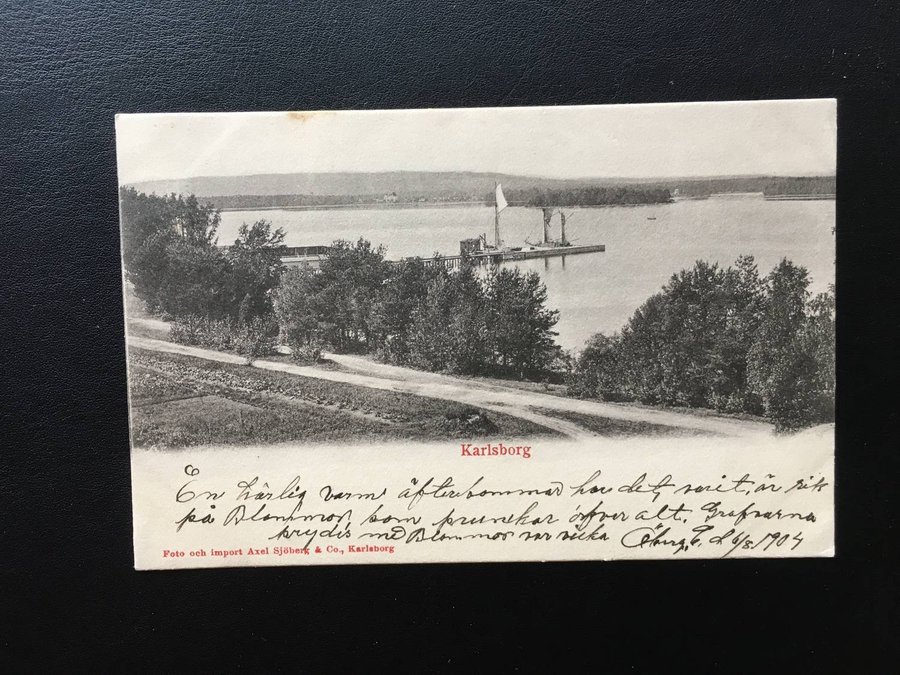 Karlsborg
En härlig varm äftersommar har det, varit, är rik
på Blommor, som prunkar öfver alt. Grafvarna
prydis med Blommor var vecka d 6/8 1904
Foto och import Axel Sjöberg & Co., Karlsborg